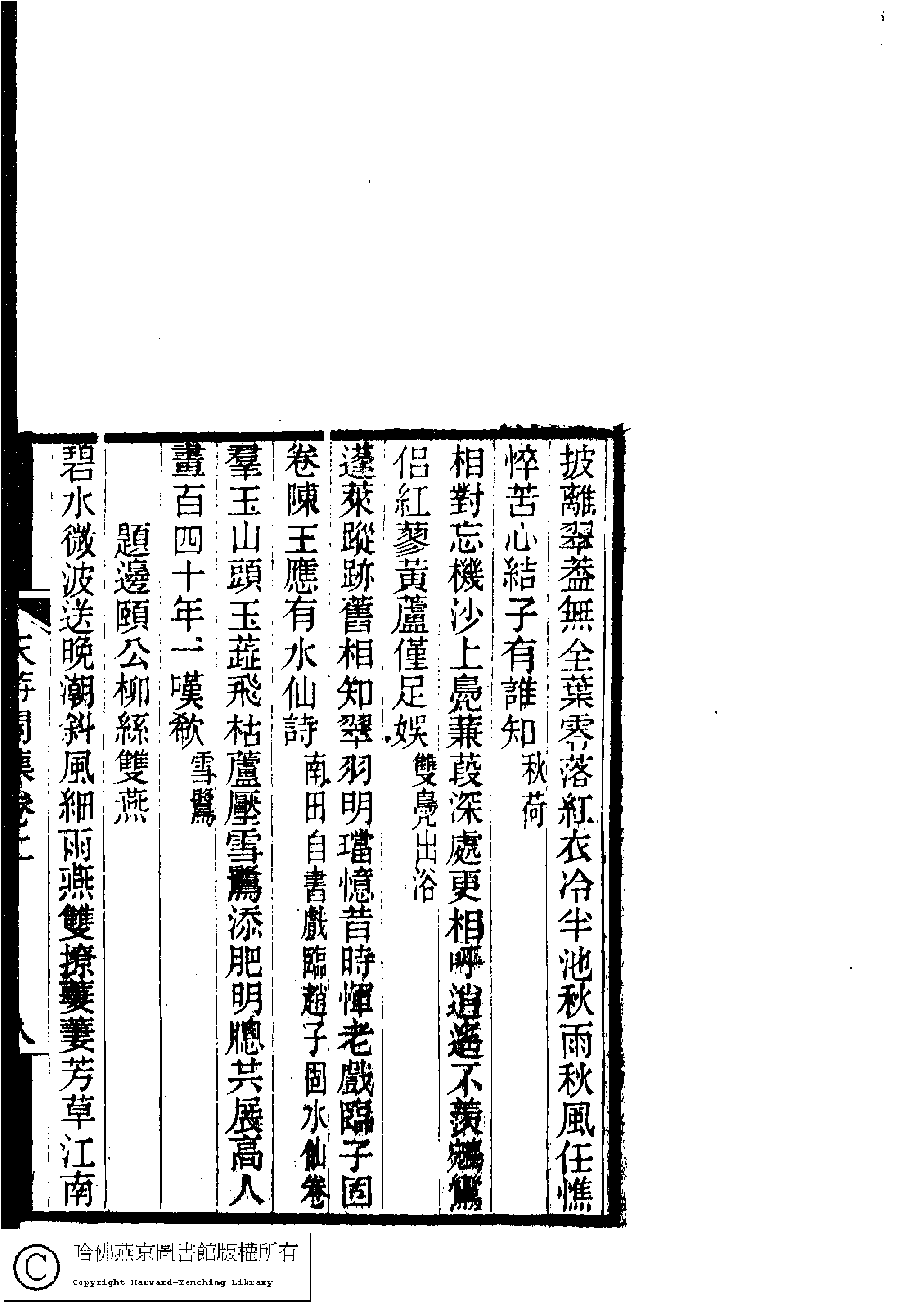 披離翠葢無全葉零落紅衣冷半池秋雨秋風任憔
悴苦心結子有誰知 秋荷
相對忘機沙上鳧蒹葭深處更相呼逍遙不羨鴛鴦
侶紅蓼黃蘆僅足娛 雙鳧出浴
蓬萊蹤跡舊相知翠羽明璫憶昔時惲老戲臨子固
卷陳王應有水仙詩 南田自書戲臨趙子固水仙卷
羣玉山頭玉蕋飛枯蘆壓雪鷺添肥明牕共展高人
畫百四十年一嘆欷 雪鷺
題邊頤公柳絲雙燕
碧水微波送晚潮斜風細雨燕雙撩萋萋芳草江南
哈佛燕京圖書館版權所有
Copyright Harvard-Yenching Library